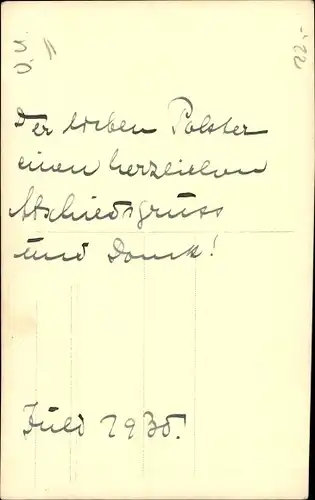 O.U.
22.-
Der lieben Polster
einen herzlichen
Abschiedsgruss
und Dank!
1930.